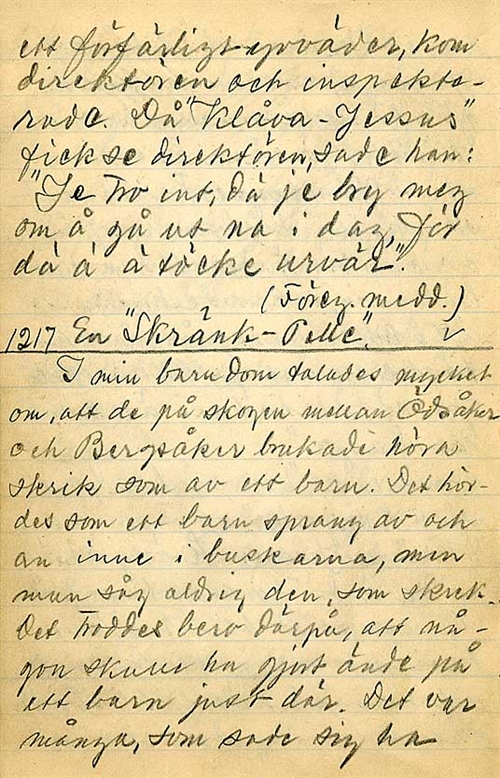 ett förfärligt yrväder, kom
direktören och inspekte-
rade. Då "Klåva-Jessus"
fick se direktören, sade han:
"Je tro int, då je bry mez
om å gå ut na i daz, för
då ä å töcke urvär."
(Föreg. medd.)
1217 En "Skränk-Pelle".
I min barndom talades mycket
om, att de på skogen mellan Ödsåker
och Bergsåker brukade höra
skrik som av ett barn. Det hör-
des som ett barn sprang av och
an inne i buskarna, men
man såg aldrig den, som skrek.
Det troddes bero därpå, att nå-
gon skulle ha gjort ände på
ett barn just där. Det var
många, som sade sig ha